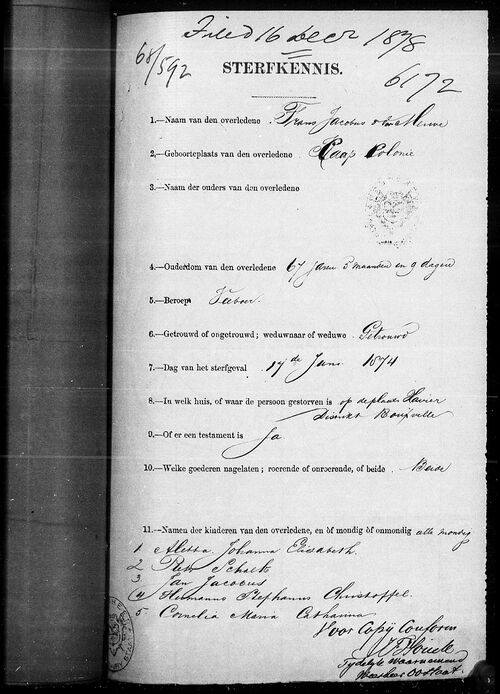 Filed 16 Decr 1878
68/592
STERFKENNIS.
6172
1.—Naam van den overledene Frans Jacobus
2.—Geboorteplaats van den overledene Kaap Colonie
3.—Naam der ouders van den overledene
4.—Ouderdom van den overledene 67 Jaren 3 maanden en 9 dagen
5.—Beroep
6.—Getrouwd of ongetrouwd; weduwnaar of weduwe Getrouwd
7.—Dag van het sterfgeval 17de Juni 1874
8.—In welk huis, of waar de persoon gestorven is op de plaats
District
9.—Of er een testament is Ja
10.—Welke goederen nagelaten; roerende of onroerende, of beide Beide
11.—Namen der kinderen van den overledene, en òf mondig òf onmondig alle mondig
1 Aletta Johanna Elisabeth.
2 Schalk
3 Jan Jacobus
4 Hermanus Stephanus Christoffel.
5 Cornelia Maria Catharina
Voor Copij Conform
Tydelyk Waarnemend